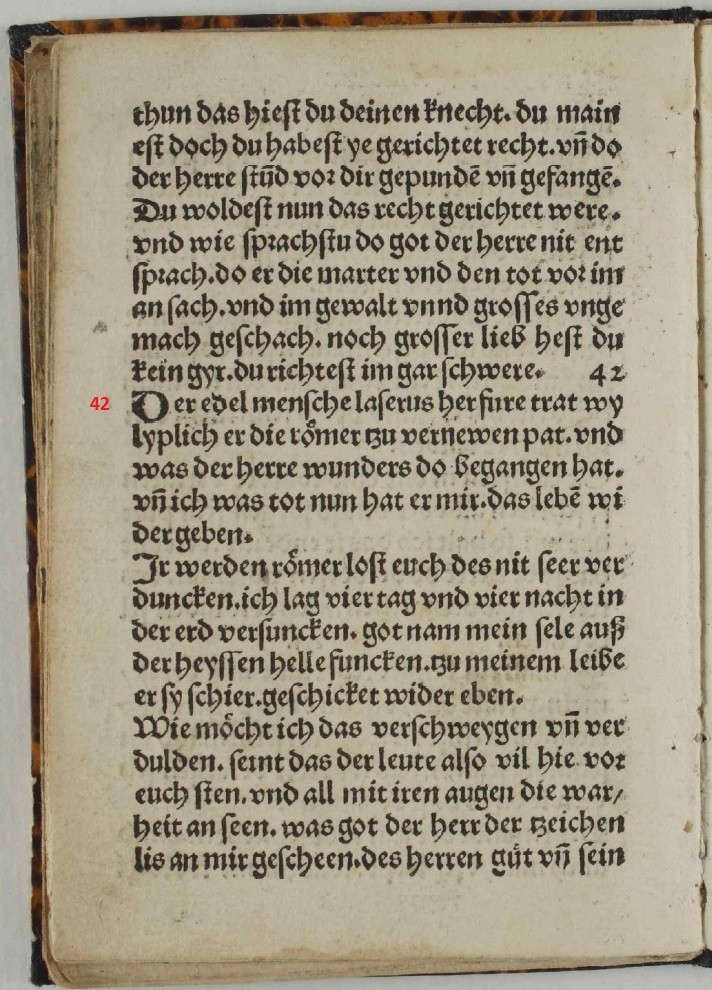 thun das hiest du deinen knecht. du main
est doch du habest ye gerichtet recht. vñ do
der herre stūd vor dir gepundē vñ gefangē.
Du woldest nun das recht gerichtet were.
vnd wie sprachstu do got der herre nit ent
sprach. do er die marter vnd den tot vor im
an sach. vnd im gewalt vnnd grosses vnge
mach geschach. noch grosser lieb hest du
kein gyr. du richtest im gar schwere. 42
42 Der edel mensche laserus herfure trat wy
lyplich er die römer tzu vernewen pat. vnd
was der herre wunders do begangen hat.
vñ ich was tot nun hat er mir. das lebē wi
der geben.
Ir werden römer lost euch des nit seer ver
duncken. ich lag vier tag vnd vier nacht in
der erd versuncken. got nam mein sele auß
der heyssen helle funcken. tzu meinem leibe
er sy schier. geschicket wider eben.
Wie möcht ich das verschweygen vñ ver
dulden. seint das der leute also vil hie vor
euch sten. vnd all mit iren augen die war/
heit an seen. was got der herr der tzeichen
lis an mir gescheen. des herren güt vñ sein